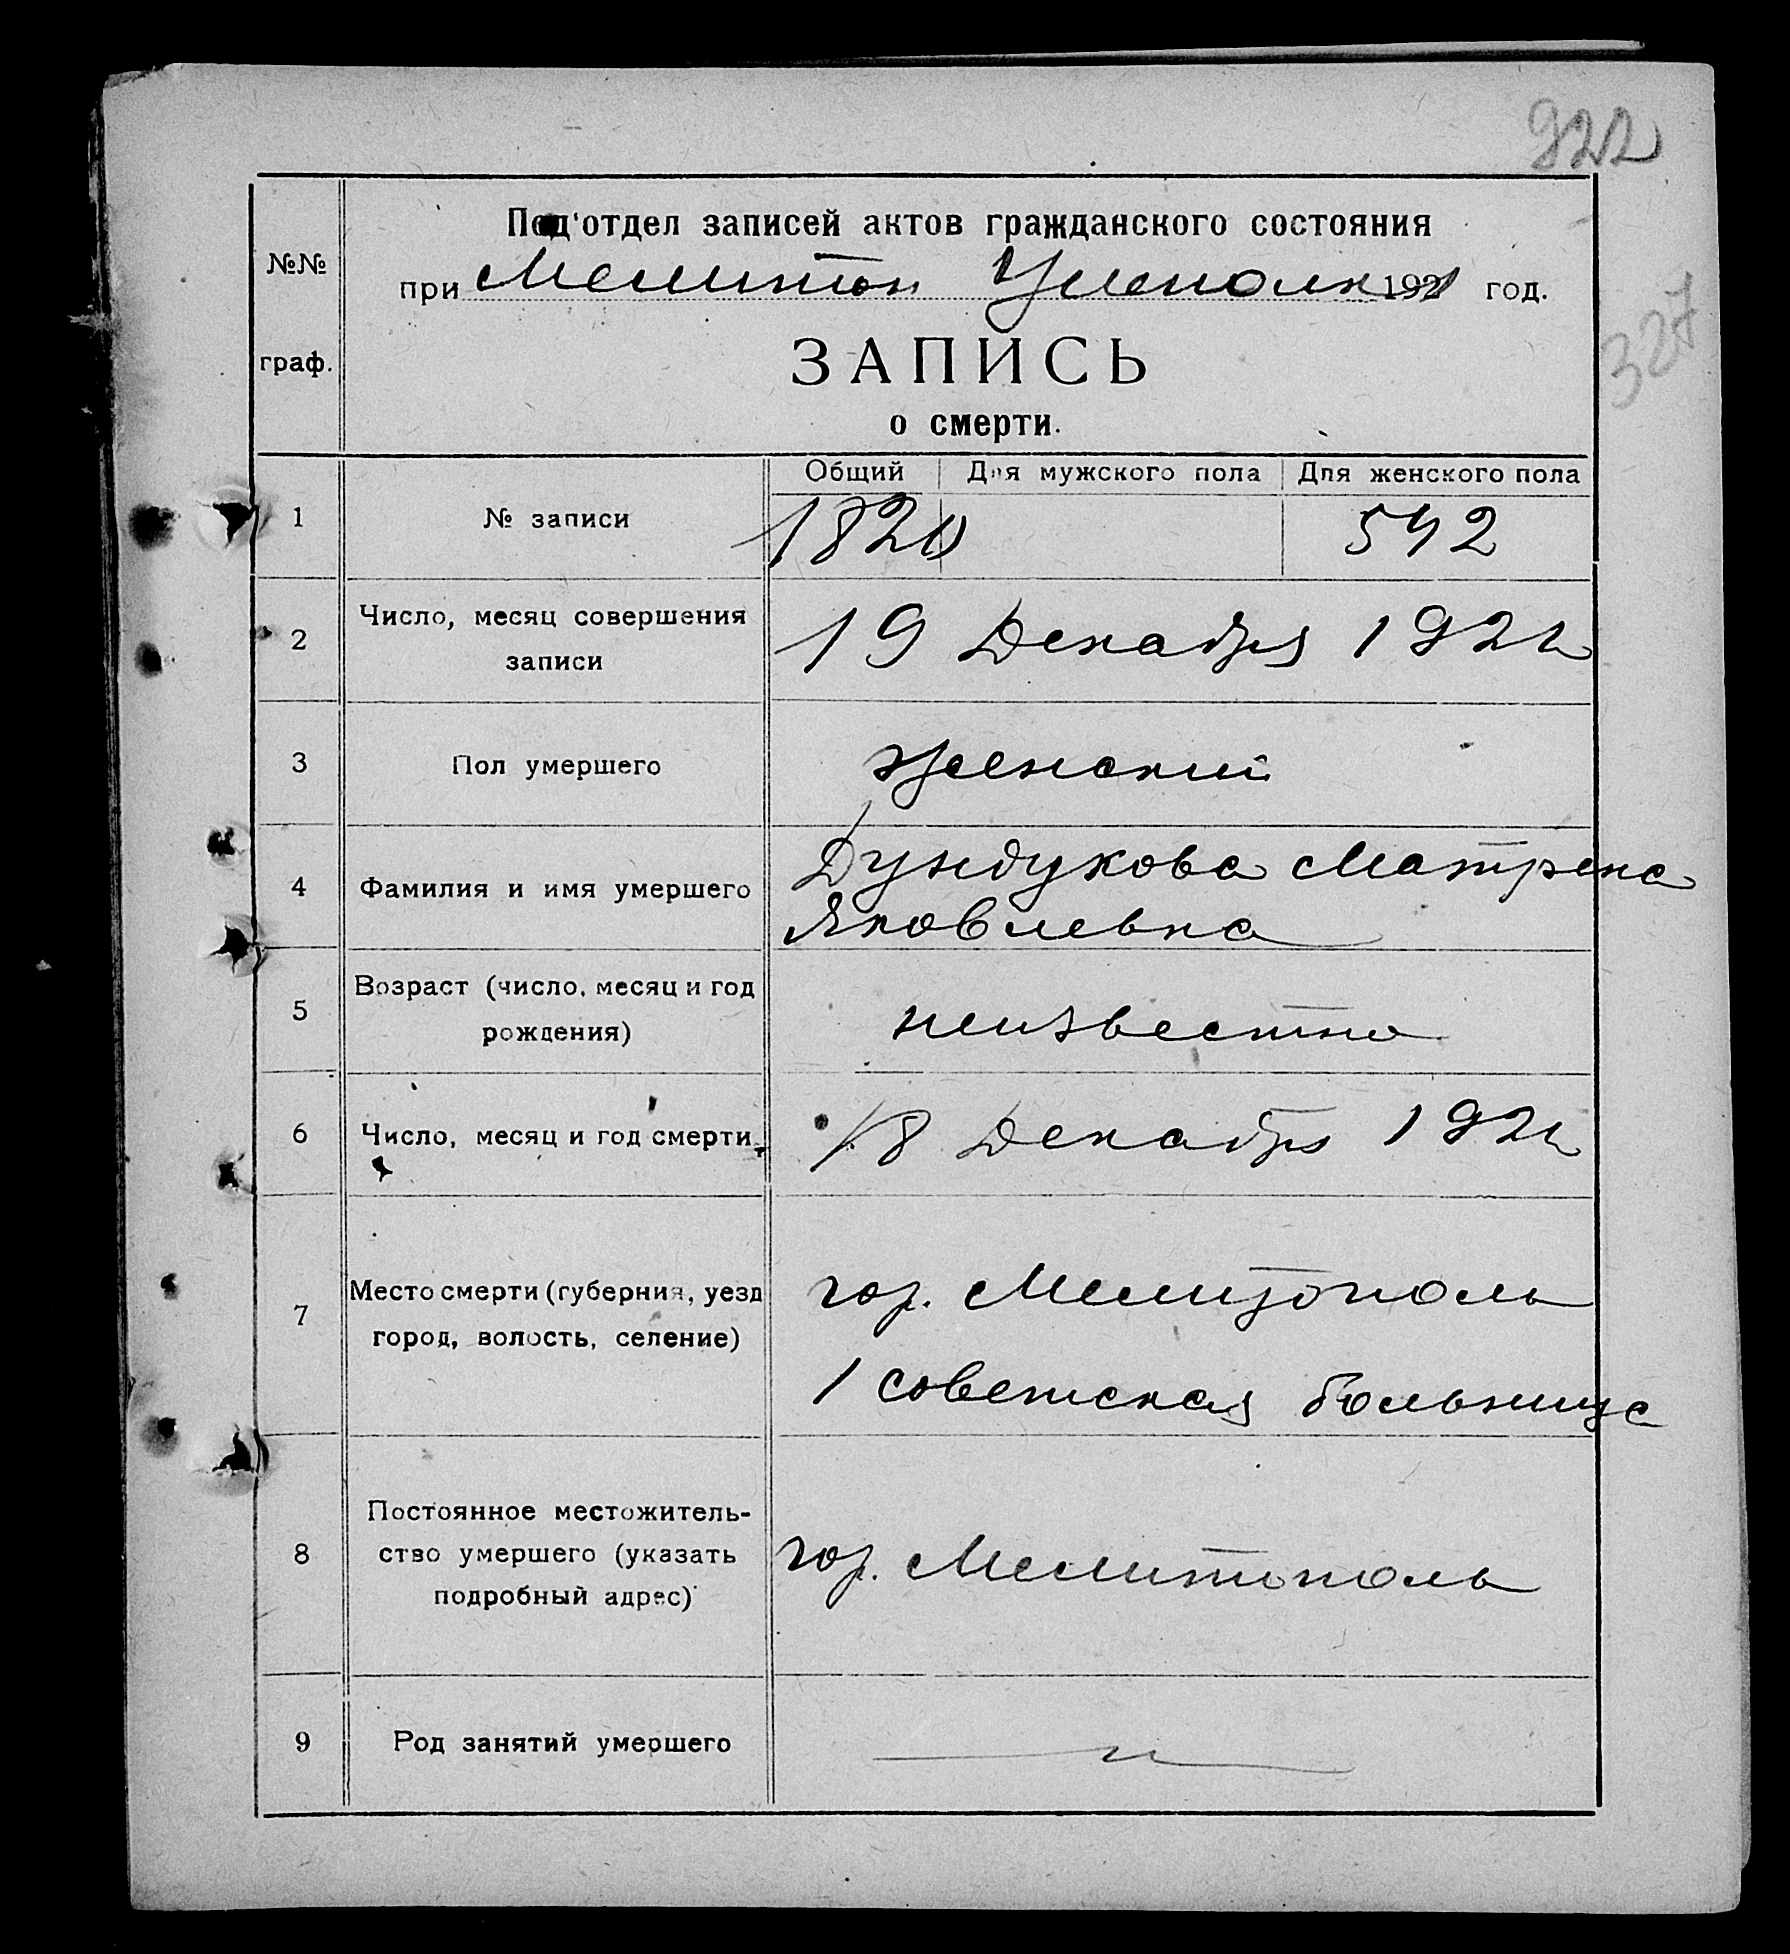 922
Под'отдел записей актов гражданского состояния
№№
при Мелитоп Уисполк 1921 год.
327
ЗАПИСЬ
граф.
о смерти.
Общий Для мужского пола Для женского пола
1 № записи 1820 542
2 Число, месяц совершения
записи
19 Декабря 1921
3 Пол умершего Женский
4 Фамилия и имя умершего
Дундукова Матрена
Яковлевна
5 Возраст (число, месяц и год
рождения)
неизвестно
6 Число, месяц и год смерти. 18 Декабря 1921
7 Место смерти (губерния, уезд
город, волость, селение)
гор. Мелитополь
1 советская больница
8 Постоянное местожитель-
ство умершего (указать
подробный адрес)
гор. Мелитополь
9 Род занятий умершего